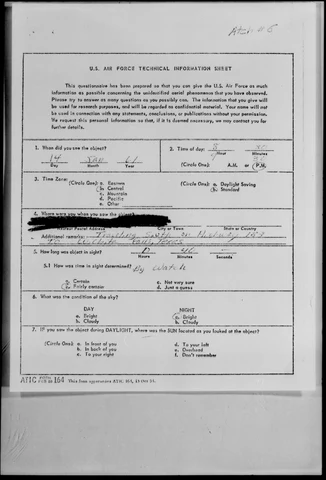 Atch # 6
U.S. AIR FORCE TECHNICAL INFORMATION SHEET
This questionnaire has been prepared so that you can give the U.S. Air Force as much
information as possible concerning the unidentified aerial phenomenon that you have observed.
Please try to answer as many questions as you possibly can. The information that you give will
be used for research purposes, and will be regarded as confidential material. Your name will not
be used in connection with any statements, conclusions, or publications without your permission.
We request this personal information so that, if it is deemed necessary, we may contact you for
further details.
1. When did you see the object?
14 Jan 61
Day Month Year
2. Time of day: 8 30
Hour Minutes
(Circle One): A.M. or P.M.
3. Time Zone:
(Circle One): a. Eastern
b. Central
c. Mountain
d. Pacific
e. Other
(Circle One): a. Daylight Saving
b. Standard
4. Where were you when you saw the object?
Nearest Postal Address City or Town State or Country
Additional remarks: Traveling South on Highway
to Wichita Falls, Texas
5. How long was object in sight?
Hours Minutes Seconds
5.1 How was time in sight determined? By Watch
a. Certain c. Not very sure
b. Fairly certain d. Just a guess
6. What was the condition of the sky?
DAY NIGHT
a. Bright a. Bright
b. Cloudy b. Cloudy
7. IF you saw the object during DAYLIGHT, where was the SUN located as you looked at the object?
(Circle One): a. In front of you d. To your left
b. In back of you e. Overhead
c. To your right f. Don't remember
ATIC FORM 164 This form supersedes ATIC 164,